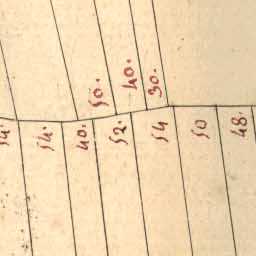 50. 40. 30.
54. 54. 40. 52. 54 50 48.